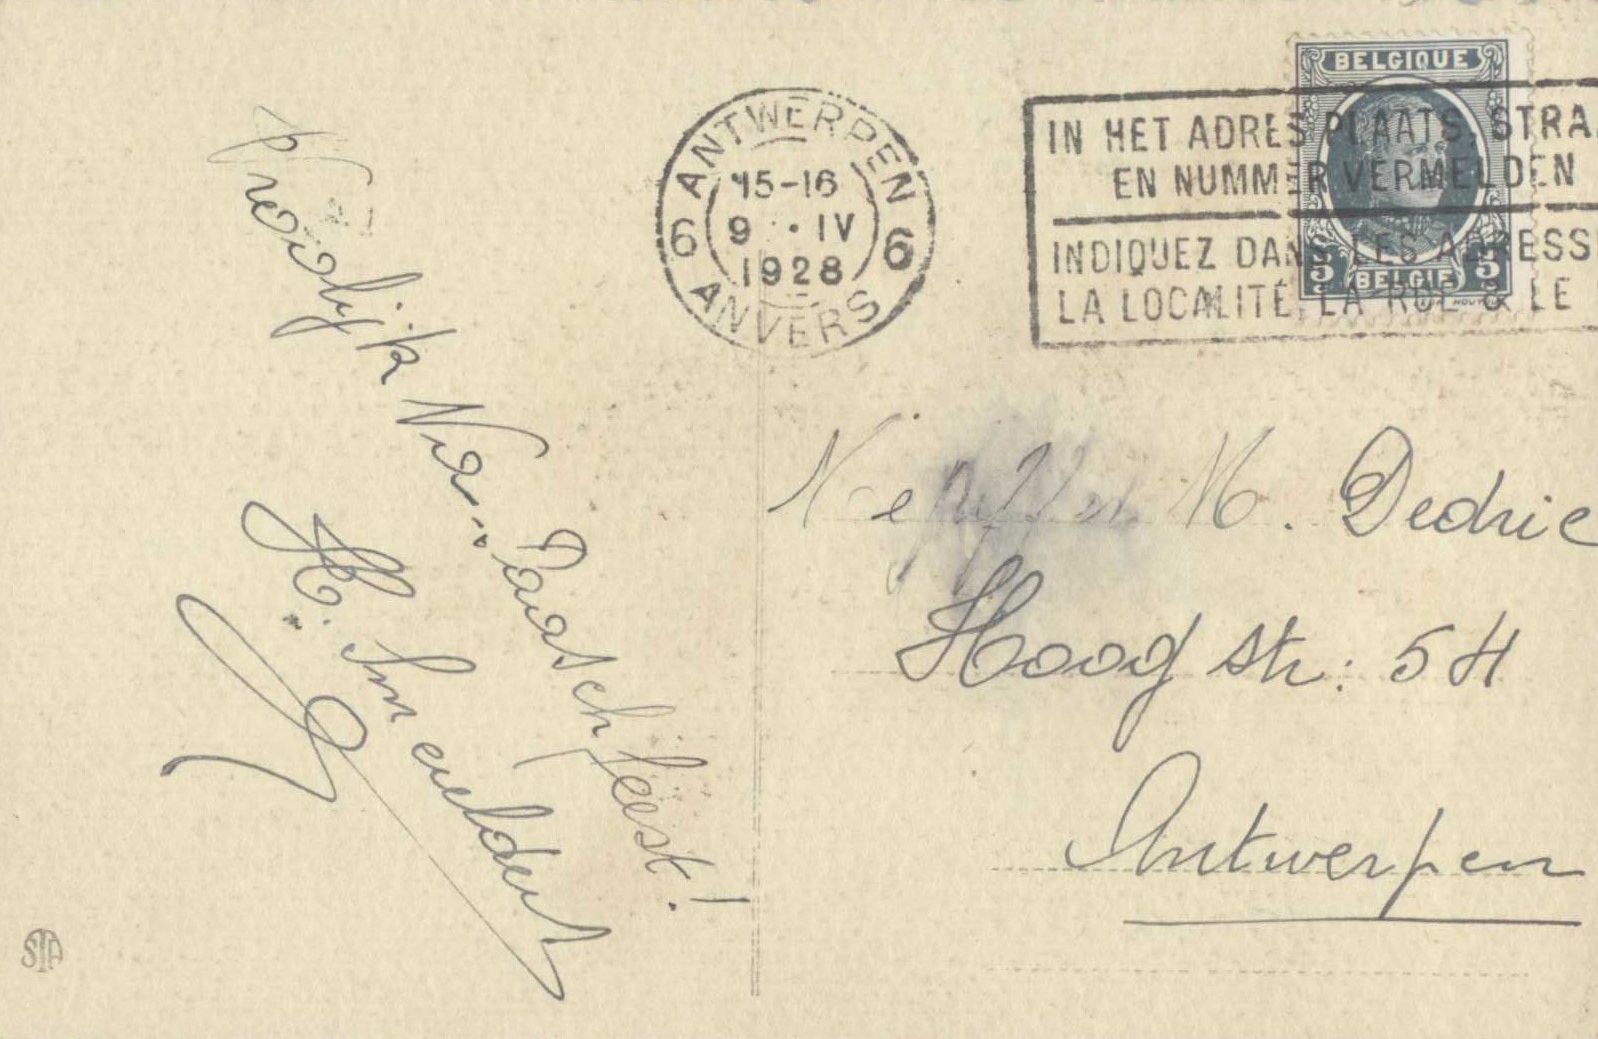 Vroolijk
Paaschfeest!
H.
ANTWERPEN
15-16
9 · IV
1928
6 6
ANVERS
BELGIQUE
5 5
BELGIE
IN HET ADRES PLAATS, STRA
EN NUMMER VERMELDEN
INDIQUEZ DANS LES ADRESSE
LA LOCALITÉ, LA RUE & LE
M. Dedrie
Hoogstr: 54
Antwerpen
STA